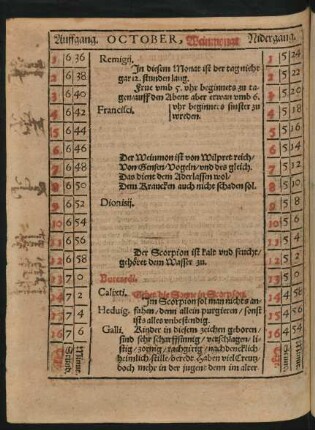 Auffgang. OCTOBER, Weinmonat Nidergang.
1 6 36 Remigij. 1 5 24
In diesem Monat ist der tag nicht
2 6 38 gar 12. stunden lang. 2 5 22
Frue vmb 5. vhr beginnets zu ta-
3 6 40 gen/auff den Abent aber etwan vmb 6. 3 5 20
4 6 42 Francisci. vhr beginnets finster zu 4 5 18
werden.
5 6 44 5 5 16
6 6 46 6 5 14
Der Weinmon ist von Wilpret reich/
7 6 48 Von Gensen/Vogeln/vnd des gleich. 7 5 12
Das dient dem Aderlassen wol/
8 6 50 Dem Krancken auch nicht schaden sol. 8 5 10
9 6 52 Dionisij. 9 5 8
10 6 54 10 5 6
11 6 56 11 5 4
Der Scorpion ist kalt vnd feucht/
12 6 58 gehöret dem Wasser zu. 12 5 2
13 7 0 13 5 0
14 7 2 Calixti. Gehet die Sonne in Scorpion. 14 4 58
Im Scorpion sol man nichts an-
15 7 4 Hedwig. fahen/ denn allein purgieren/ sonst 15 4 56
ists alles vnbestendig.
16 7 6 Galli. Kinder in diesem zeichen geboren/ 16 4 54
sind sehr scharffsinnig/ verschlagen/ li-
stig/ zornig/ rachgirig/ nachdencklich/
heimlich/stille/ beredt. Haben viel Creutz/
doch mehr in der jugent denn im alter.